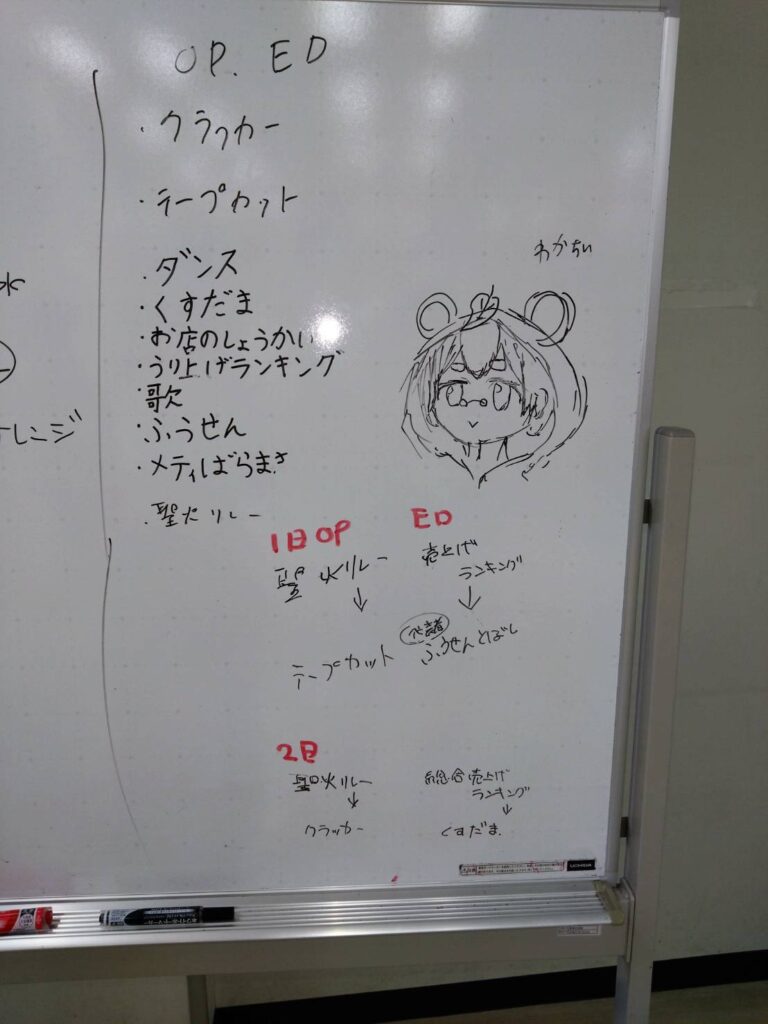 OP. ED
・クラッカー
・テープカット
・ダンス
・くすだま
・お店のしょうかい
・うり上げランキング
・歌
・ふうせん
・メディばらまき
・聖火リレー
レンジ
わかちい
1日OP
聖火リレー
↓
テープカット
ED
売上げ
ランキング
↓
ふうせんとばし
2日
聖火リレー
↓
クラッカー
総合売上げ
ランキング
↓
くすだま
UCHIDA